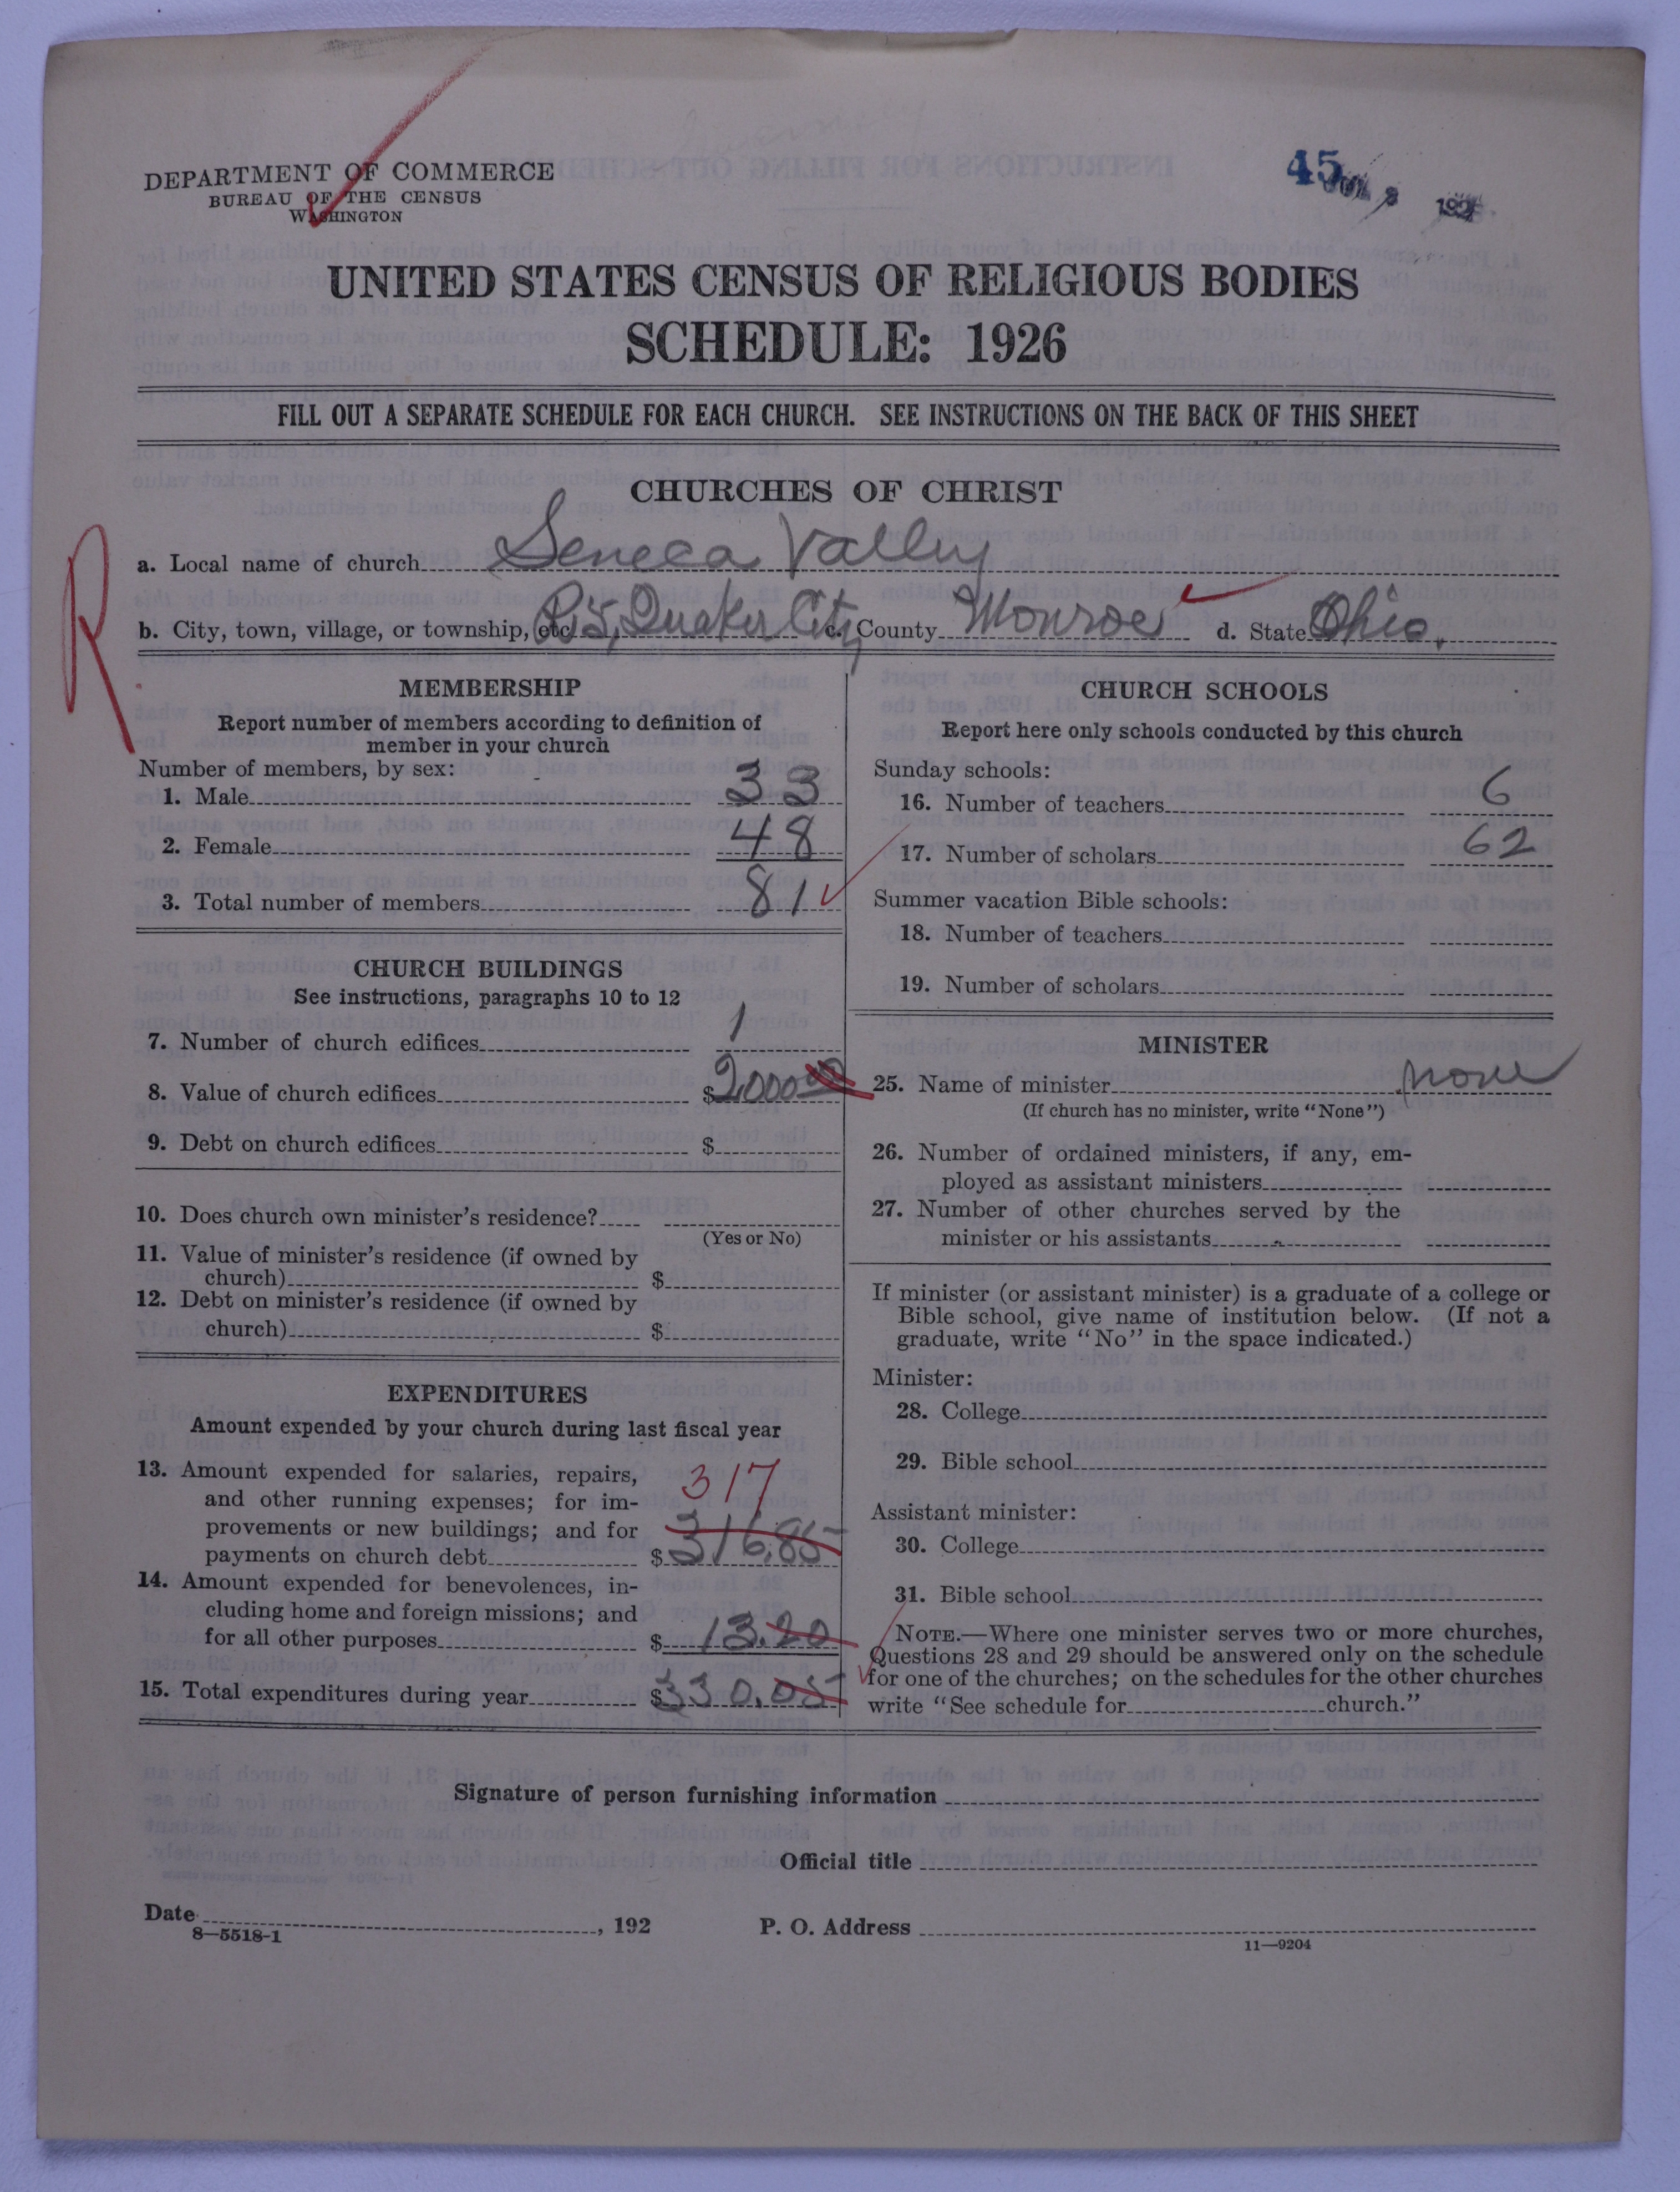 DEPARTMENT OF COMMERCE
BUREAU OF THE CENSUS
WASHINGTON
45
UNITED STATES CENSUS OF RELIGIOUS BODIES
SCHEDULE: 1926
FILL OUT A SEPARATE SCHEDULE FOR EACH CHURCH. SEE INSTRUCTIONS ON THE BACK OF THIS SHEET
CHURCHES OF CHRIST
R
a. Local name of church Seneca Valley
b. City, town, village, or township, etc. R5, Quaker City c. County Monroe d. State Ohio.
MEMBERSHIP
Report number of members according to definition of
member in your church
Number of members, by sex:
1. Male 33
2. Female 48
3. Total number of members 81
CHURCH BUILDINGS
See instructions, paragraphs 10 to 12
7. Number of church edifices 1
8. Value of church edifices $2000 00
9. Debt on church edifices $
10. Does church own minister's residence?
(Yes or No)
11. Value of minister's residence (if owned by
church) $
12. Debt on minister's residence (if owned by
church) $
EXPENDITURES
Amount expended by your church during last fiscal year
13. Amount expended for salaries, repairs,
and other running expenses; for im-
317
provements or new buildings; and for
payments on church debt $316.85
14. Amount expended for benevolences, in-
cluding home and foreign missions; and
for all other purposes $13.20
15. Total expenditures during year $330.05
CHURCH SCHOOLS
Report here only schools conducted by this church
Sunday schools:
16. Number of teachers 6
17. Number of scholars 62
Summer vacation Bible schools:
18. Number of teachers
19. Number of scholars
MINISTER
25. Name of minister none
(If church has no minister, write "None")
26. Number of ordained ministers, if any, em-
ployed as assistant ministers
27. Number of other churches served by the
minister or his assistants
If minister (or assistant minister) is a graduate of a college or
Bible school, give name of institution below. (If not a
graduate, write "No" in the space indicated.)
Minister:
28. College
29. Bible school
Assistant minister:
30. College
31. Bible school
NOTE.—Where one minister serves two or more churches,
Questions 28 and 29 should be answered only on the schedule
for one of the churches; on the schedules for the other churches
write "See schedule for church."
Signature of person furnishing information
Official title
Date , 192 P. O. Address
8—5518-1
11—9204